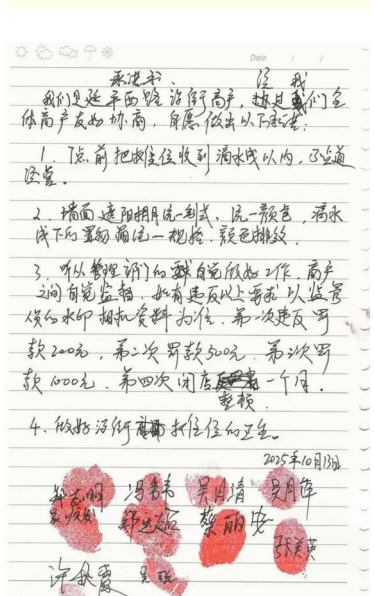 Date / /
承诺书、
经 我
我们是延平西路沿街商户,我们全
体商户友好协商,自愿做出以下承诺:
1、7点前把摊位收到滴水线以内,不占道
经营。
2、墙面遮阳棚用统一制式、统一颜色,滴水
线下的置物箱统一规格、颜色排放。
3、听从管理部门的自觉做好工作,商户
之间自觉监督,如有违反以上要求以监管
人员的水印相机资料为准。第一次违反罚
款200元,第二次罚款500元,第三次罚
款1000元、第四次闭店一个月。
整顿
4、做好沿街摊位的卫生。
2025年10月13日
冯 吴月清 吴月萍
蔡丽安
张美英
许秋霞 吴